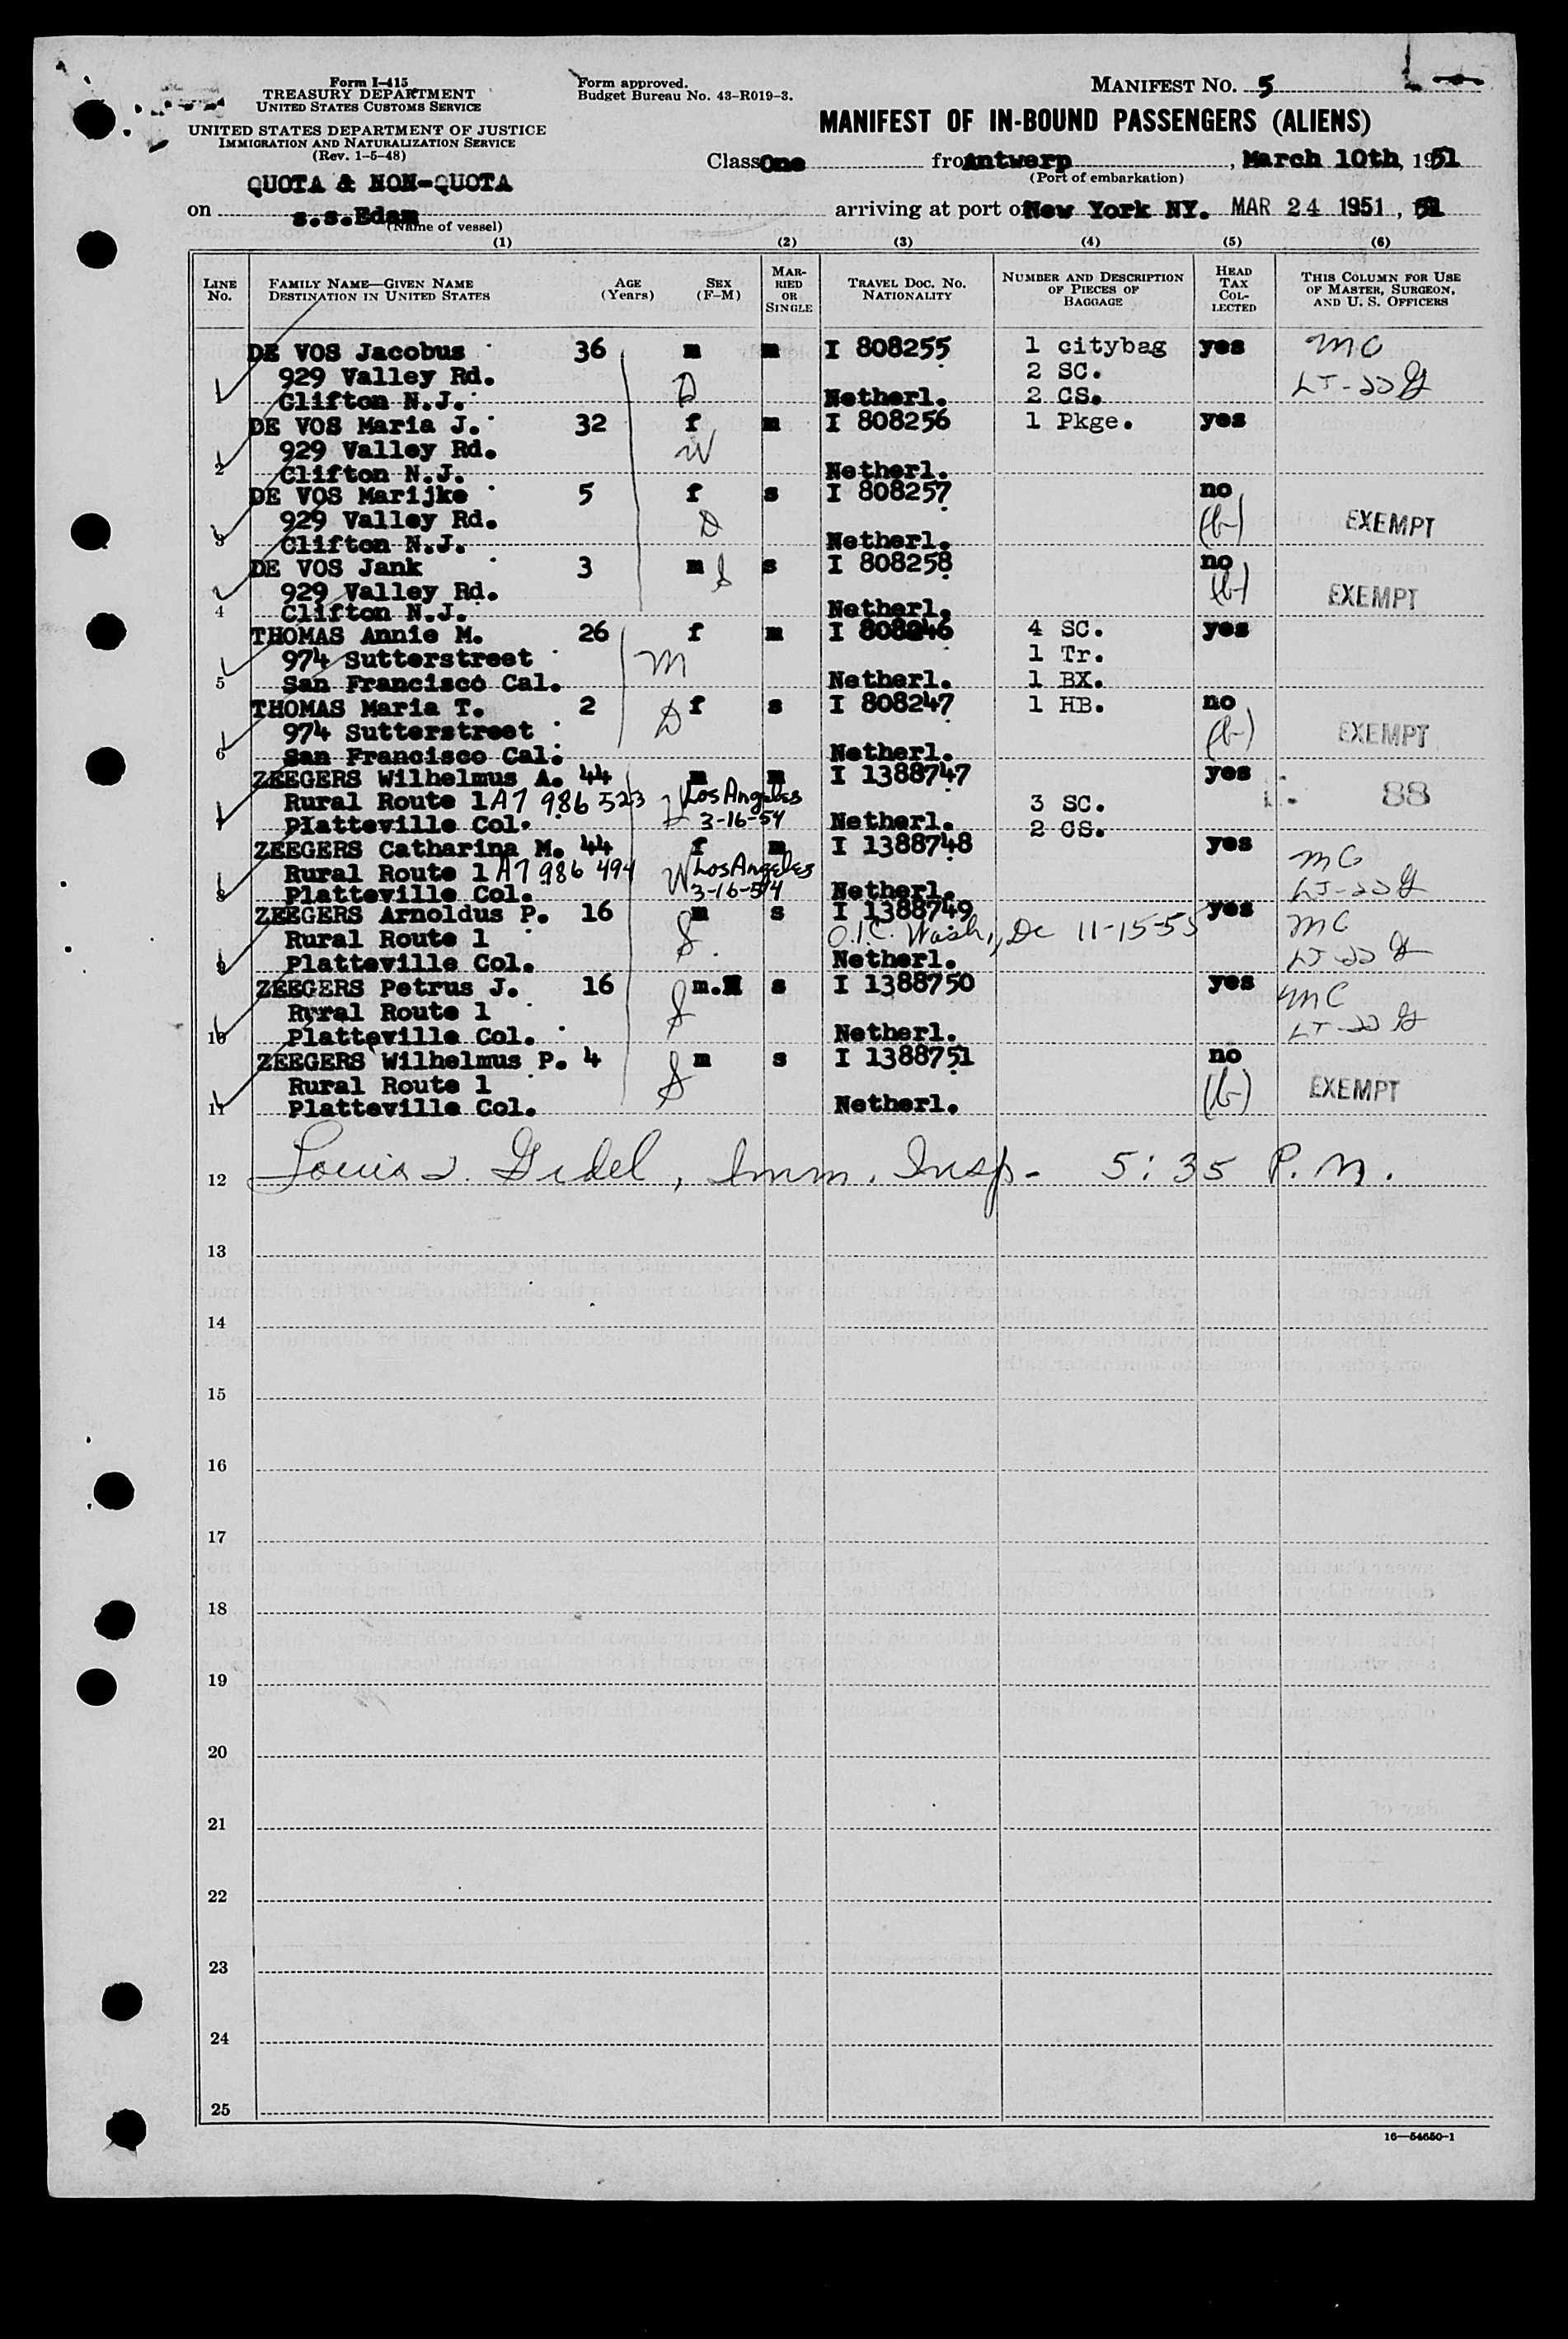 Form I-415
TREASURY DEPARTMENT
UNITED STATES CUSTOMS SERVICE
UNITED STATES DEPARTMENT OF JUSTICE
IMMIGRATION AND NATURALIZATION SERVICE
(Rev. 1-5-48)
Form approved.
Budget Bureau No. 43-R019-3.
MANIFEST NO. 5
MANIFEST OF IN-BOUND PASSENGERS (ALIENS)
Class One from Antwerp, March 10th, 1951
(Port of embarkation)
QUOTA & NON-QUOTA
on s.s.Edam arriving at port of New York NY. MAR 24 1951, 51
(Name of vessel)
(1) (2) (3) (4) (5) (6)
LINE NO.
FAMILY NAME—GIVEN NAME
DESTINATION IN UNITED STATES
AGE (Years)
SEX (F-M)
MARRIED OR SINGLE
TRAVEL DOC. NO.
NATIONALITY
NUMBER AND DESCRIPTION OF PIECES OF BAGGAGE
HEAD TAX COLLECTED
THIS COLUMN FOR USE OF MASTER, SURGEON, AND U. S. OFFICERS
DE VOS Jacobus 36 m m I 808255 1 citybag yes MC
929 Valley Rd. 2 SC.
1 Clifton N.J. Netherl. 2 CS.
DE VOS Maria J. 32 f m I 808256 1 Pkge. yes
929 Valley Rd. W
2 Clifton N.J. Netherl.
DE VOS Marijke 5 f s I 808257 no
929 Valley Rd. D (b) EXEMPT
3 Clifton N.J. Netherl.
DE VOS Jank 3 m S s I 808258 no
929 Valley Rd. (b) EXEMPT
4 Clifton N.J. Netherl.
THOMAS Annie M. 26 f m I 808246 4 SC. yes
974 Sutterstreet M 1 Tr.
5 San Francisco Cal. Netherl. 1 BX.
THOMAS Maria T. 2 f s I 808247 1 HB. no
974 Sutterstreet D (b) EXEMPT
6 San Francisco Cal. Netherl.
ZEEGERS Wilhelmus A. 44 m m I 1388747 yes
Rural Route 1 A7 986 523 Los Angeles 3 SC. 88
7 Platteville Col. 3-16-54 Netherl. 2 CS.
ZEEGERS Catharina M. 44 f m I 1388748 yes
Rural Route 1 A7 986 494 W Los Angeles MC
8 Platteville Col. 3-16-54 Netherl.
ZEEGERS Arnoldus P. 16 m s I 1388749 yes MC
Rural Route 1 S O.I.C. Wash., Dc 11-15-55
9 Platteville Col. Netherl.
ZEEGERS Petrus J. 16 m. s I 1388750 yes MC
Ryral Route 1 S
10 Platteville Col. Netherl.
ZEEGERS Wilhelmus P. 4 m s I 1388751 no
Rural Route 1 S (b) EXEMPT
11 Platteville Col. Netherl.
12 Louis J. Gidel, Imm. Insp- 5:35 P.M.
13
14
15
16
17
18
19
20
21
22
23
24
25
16—54650-1